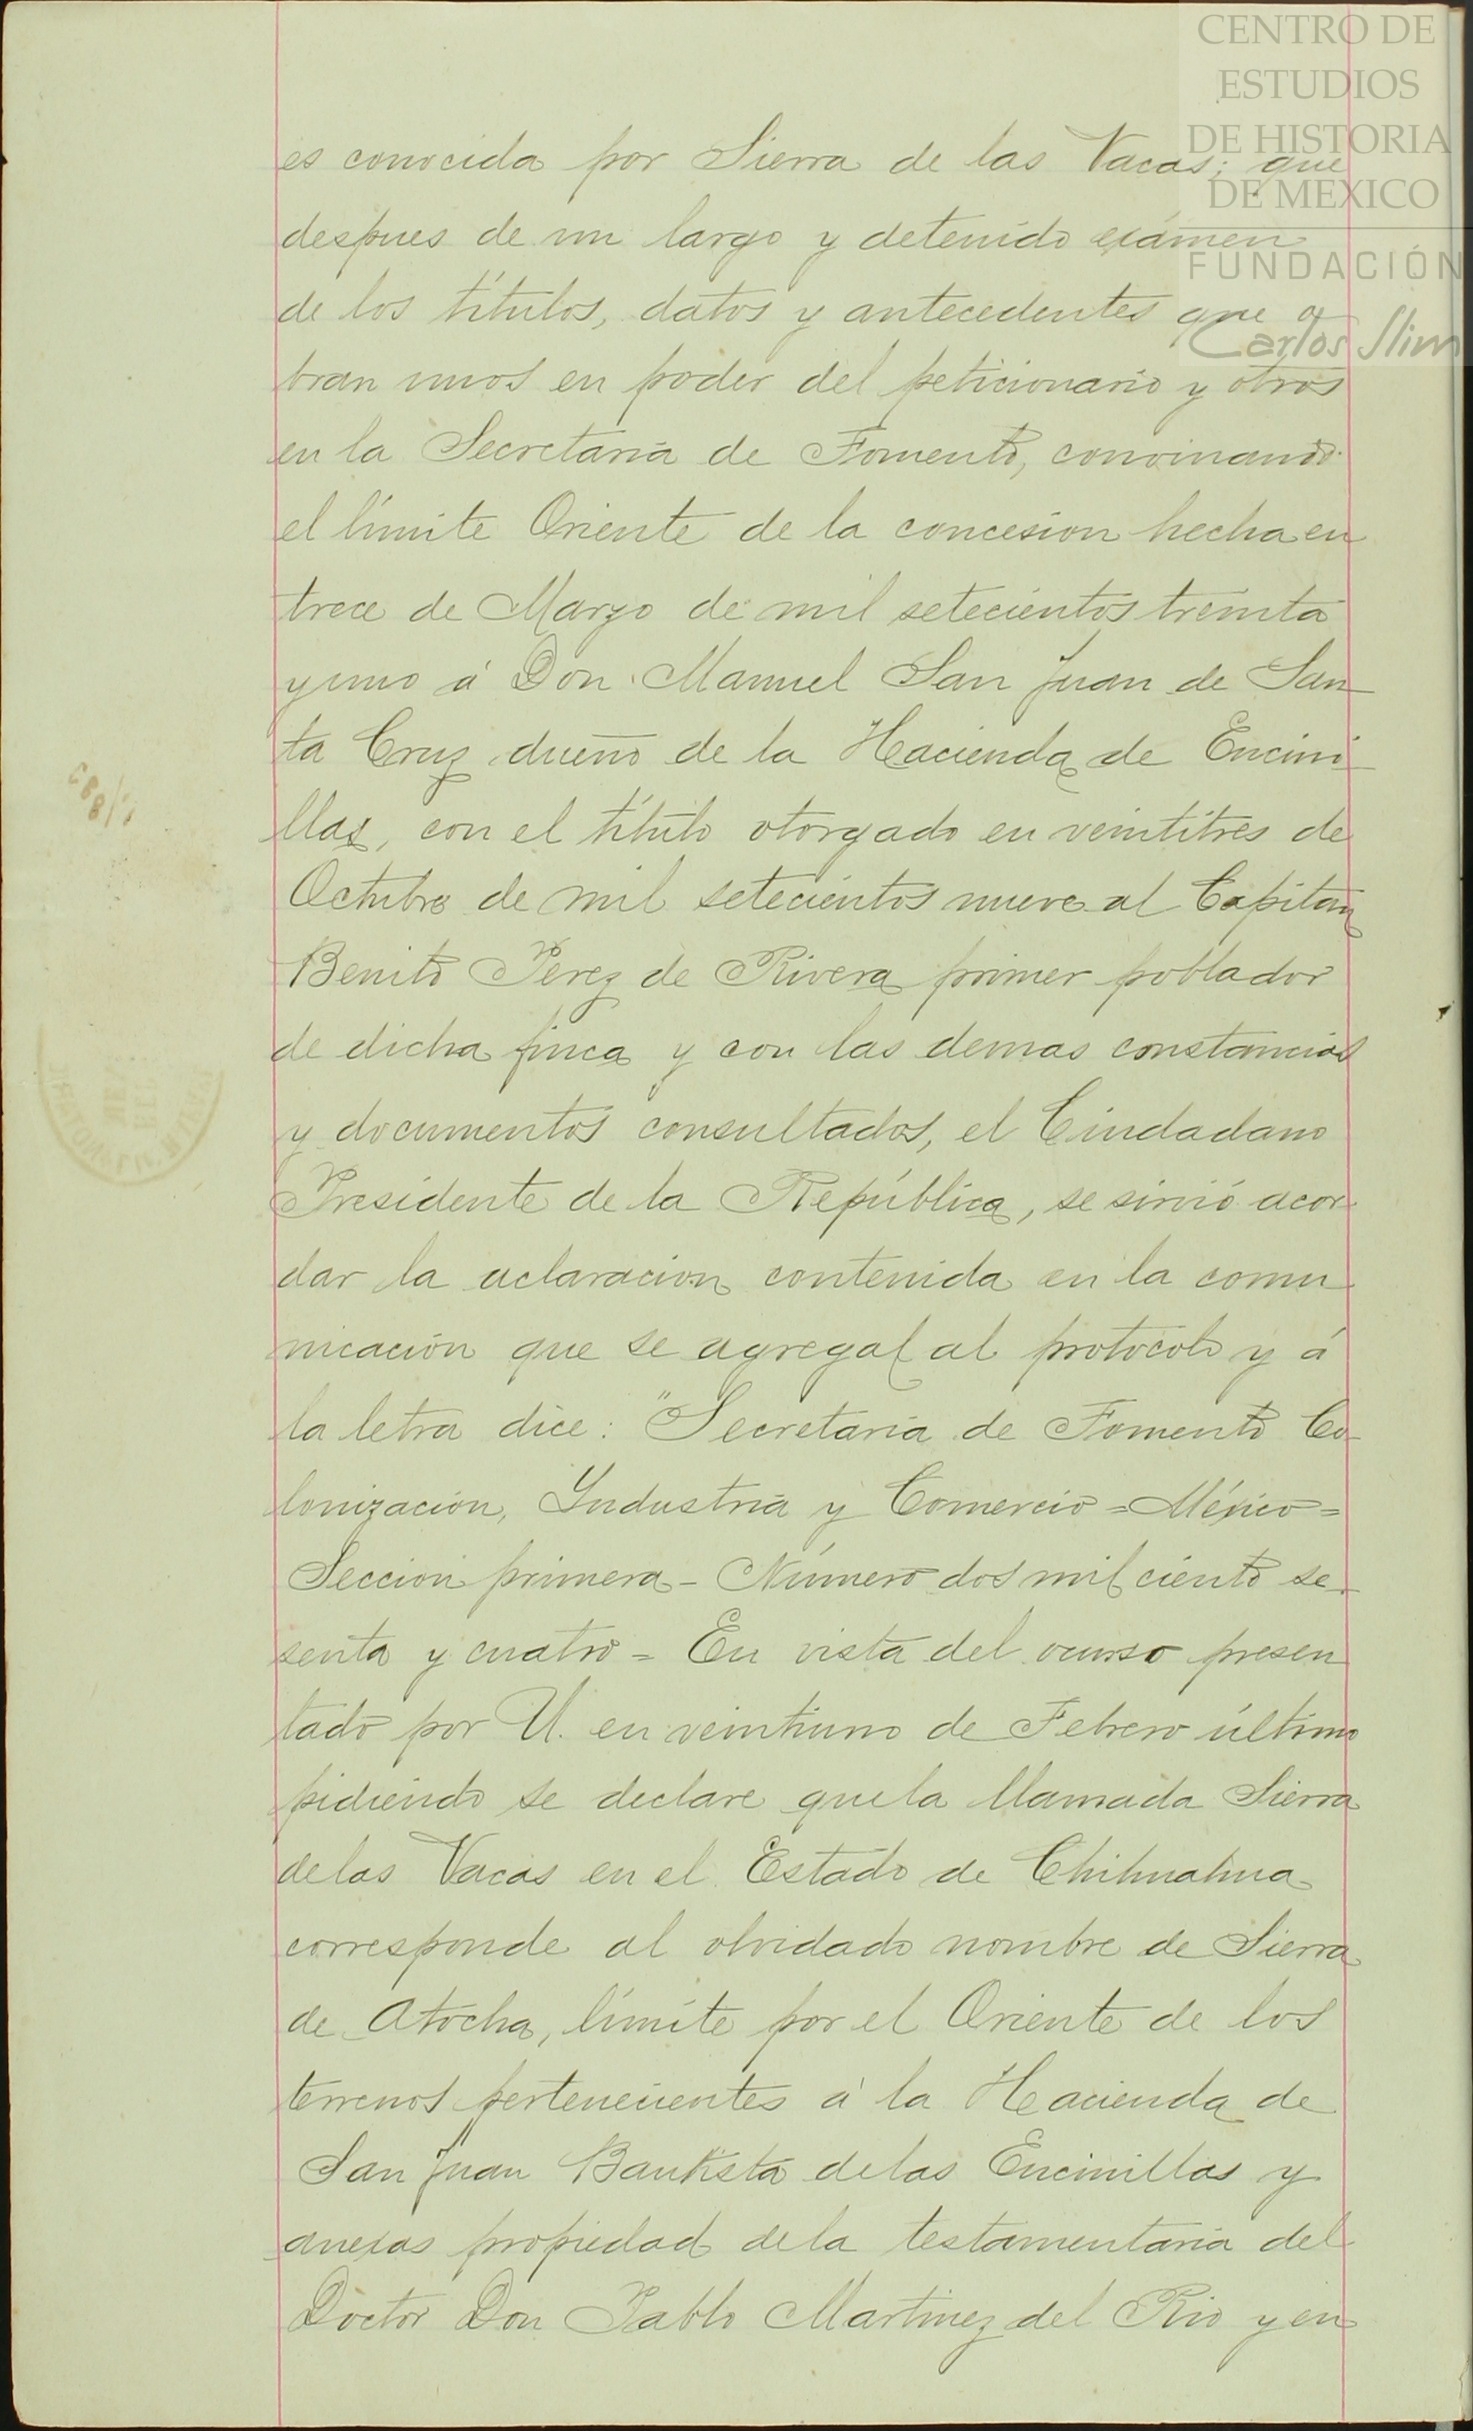 CENTRO DE
ESTUDIOS
DE HISTORIA
DE MEXICO
FUNDACIÓN
Carlos Slim
es conocida por Sierra de las Vacas; que
despues de un largo y detenido exámen
de los títulos, datos y antecedentes que o
bran unos en poder del peticionario y otros
en la Secretaría de Fomento, convinando
el límite Oriente de la concesion hecha en
trece de Marzo de mil setecientos treinta
y uno á Don Manuel San Juan de San
ta Cruz dueño de la Hacienda de Encini
llas, con el título otorgado en veintitres de
Octubre de mil setecientos nueve al Capitan
Benito Perez de Rivera primer poblador
de dicha finca y con las demas constancias
y documentos consultados, el Ciudadano
Presidente de la República, se sirvió acor
dar la aclaracion contenida en la comu
nicación que se agregal al protocolo y á
la letra dice: "Secretaría de Fomento Co
lonización, Industria y Comercio = México =
Seccion primera - Número dos mil ciento se
senta y cuatro = En vista del ocurso presen
tado por U. en veintiuno de Febrero último
pidiendo se declare que la llamada Sierra
de las Vacas en el Estado de Chihuahua
corresponde al olvidado nombre de Sierra
de Atocha, límite por el Oriente de los
terrenos pertenecientes á la Hacienda de
San Juan Bautista de las Encinillas y
anexas propiedad de la testamentaria del
Doctor Don Pablo Martinez del Rio y en